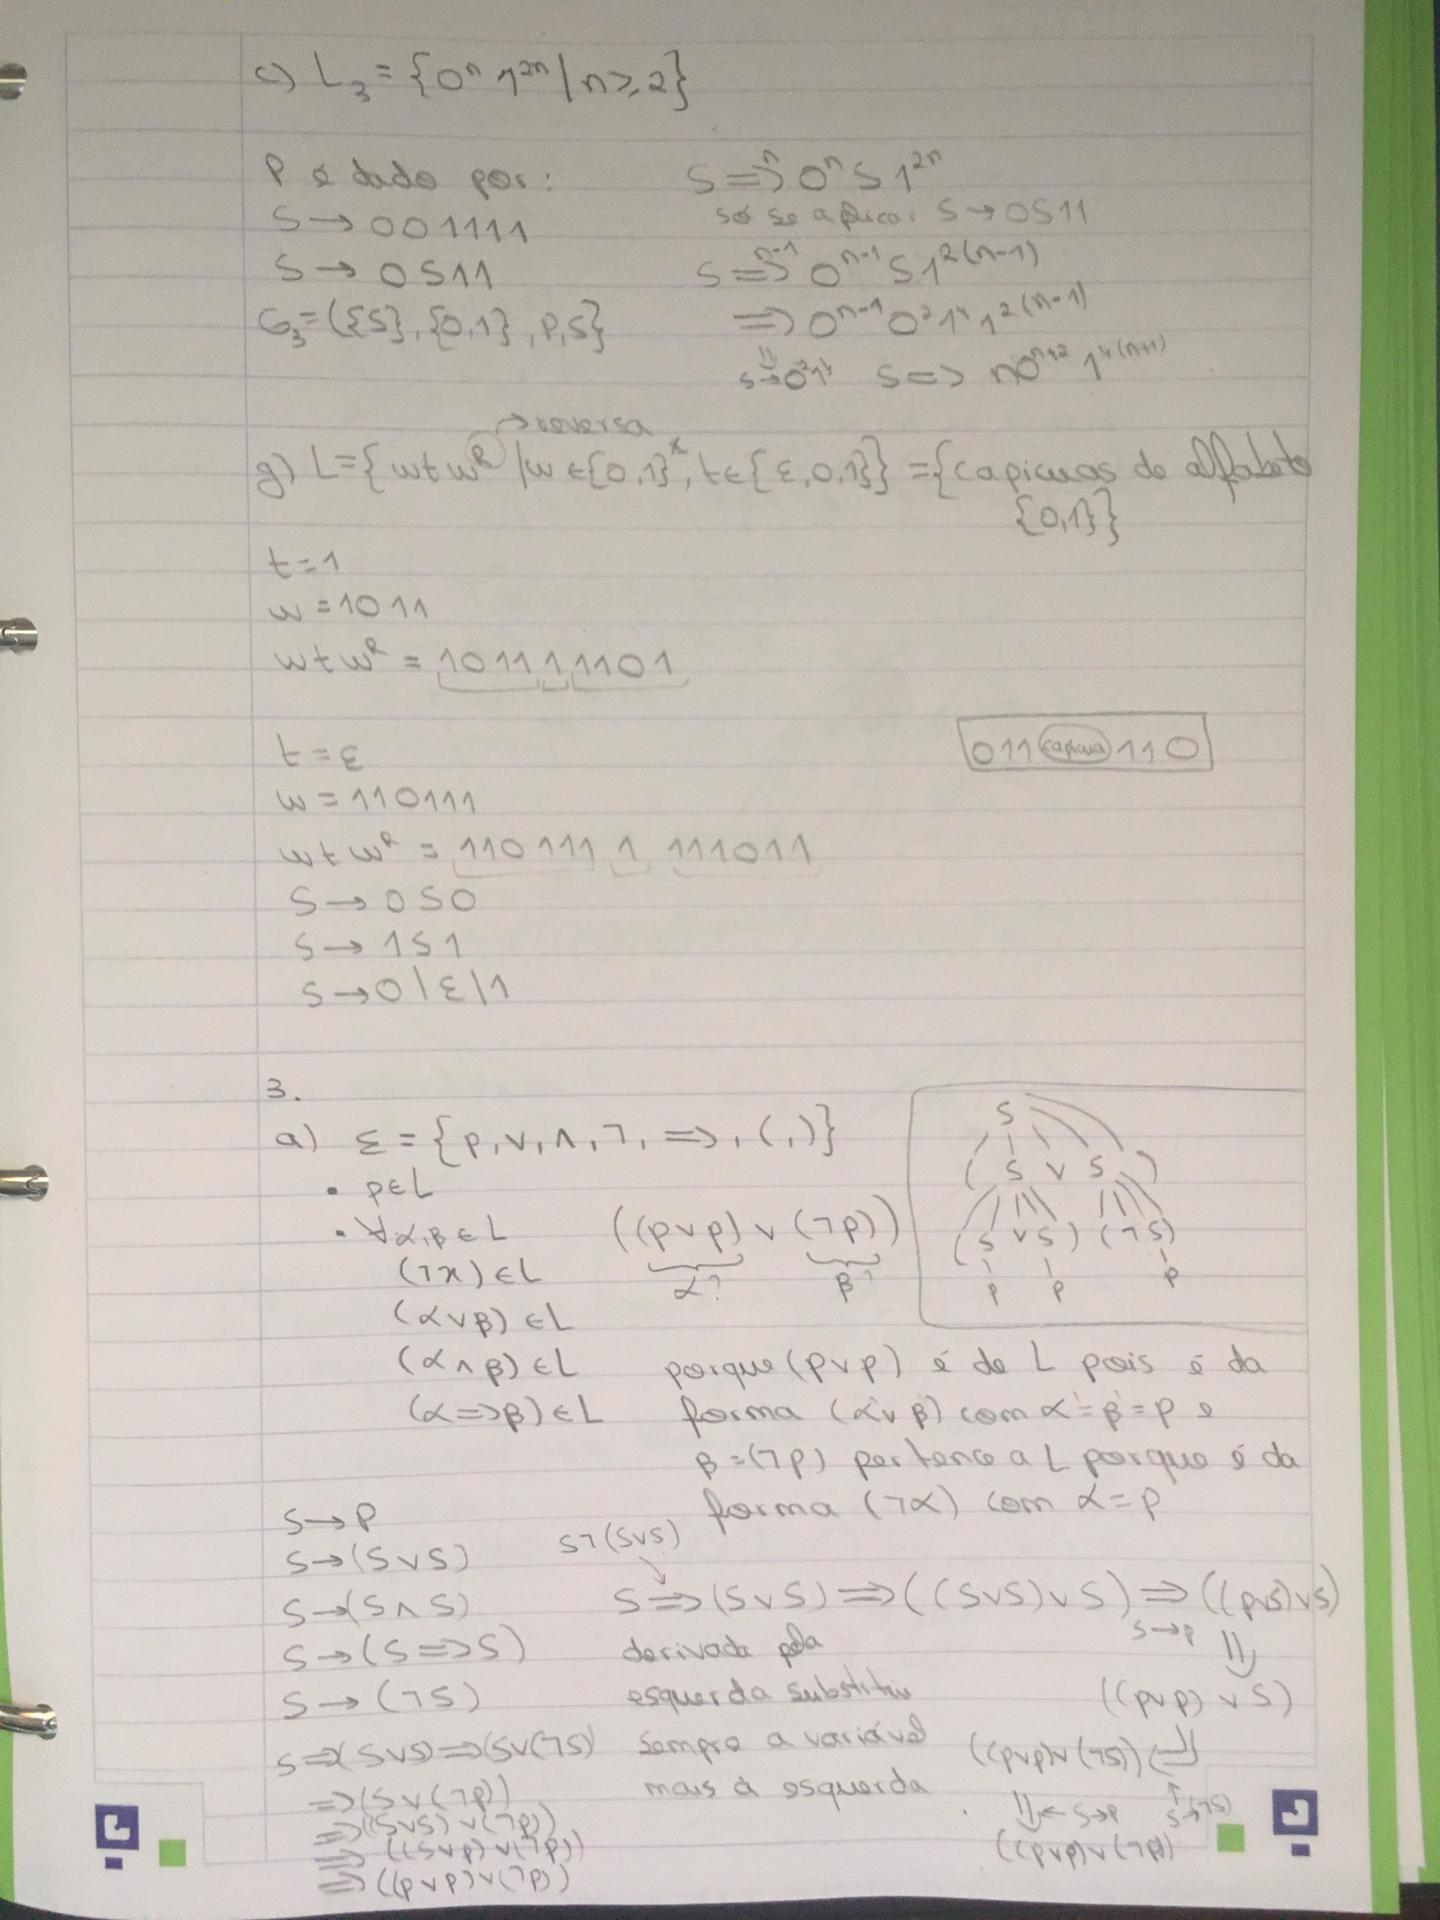 c) L₃ = {0ⁿ 1²ⁿ | n ≥ 2}
P é dado por:
S → 001111
S → 0S11
G₃ = ({S}, {0,1}, P, S}
S ⇒ⁿ 0ⁿ S 1²ⁿ
só se aplicar S → 0S11
S ⇒ⁿ⁻¹ 0ⁿ⁻¹ S 1²⁽ⁿ⁻¹⁾
⇒ 0ⁿ⁻¹ 0² 1⁴ 1²⁽ⁿ⁻¹⁾
S → 0²1⁴ S ⇒ n0ⁿ⁺² 1⁴⁽ⁿ⁺¹⁾
→ reversa
g) L = {wtwᴿ | w ∈ {0,1}*, t ∈ {ε,0,1}} = {capicuas do alfabeto
{0,1}}
t = 1
w = 1011
wtwᴿ = 1011 1 1101
t = ε
w = 110111
wtwᴿ = 110111 1 111011
011 capicua 110
S → 0S0
S → 1S1
S → 0 | ε | 1
3.
a) Σ = {p, ∨, ∧, ¬, ⇒, (, )}
• p ∈ L
• ∀α,β ∈ L
(¬x) ∈ L
(α∨β) ∈ L
(α∧β) ∈ L
(α⇒β) ∈ L
((p∨p) ∨ (¬p))
α? β?
S
( S ∨ S )
(S ∨ S) (¬S)
p p p
porque (p∨p) é de L pois é da
forma (α'∨β') com α'=β'=p e
β = (¬p) pertence a L porque é da
forma (¬α) com α = p
S → p
S → (S∨S)
S → (S∧S)
S → (S⇒S)
S → (¬S)
S ⇒ (S∨S) ⇒ (S∨(¬S)
⇒ (S∨(¬p))
⇒ (S∨S) ∨ (¬p))
⇒ ((S∨p) ∨ (¬p))
⇒ ((p∨p) ∨ (¬p))
S¬(S∨S)
S ⇒ (S∨S) ⇒ ((S∨S)∨S) ⇒ ((p∨S)∨S)
S→p
derivada pela
esquerda substitui
sempre a variável
mais à esquerda
⇓
((p∨p) ∨ S)
((p∨p)∨(¬S)) ⇐
S→(¬S)
⇓ ← S→p
((p∨p)∨(¬p))